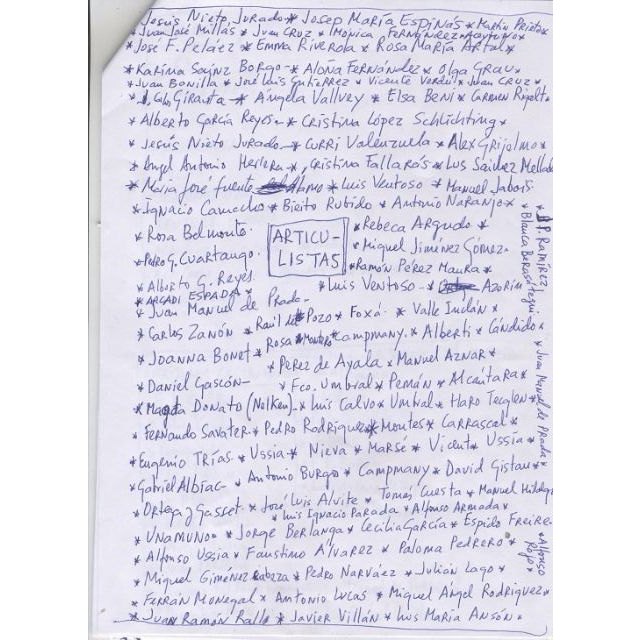 Jesús Nieto Jurado * Josep María Espinàs * Martín Prieto *
* Juan José Millás * Juan Cruz * Mónica Fernández-Aceytuno *
* José F. Peláez * Emma Riverola * Rosa María Artal *
* Karina Sainz Borgo * Aloña Fernández * Olga Grau *
* Juan Bonilla * José Luis Gutiérrez * Vicente Verdú * Juan Cruz *
* Girauta * Ángela Vallvey * Elsa Beni * Carmen Rigalt *
* Alberto García Reyes * Cristina López Schlichting *
* Jesús Nieto Jurado * Curri Valenzuela * Alex Grijelmo *
* Angel Antonio Herrera * Cristina Fallarás * Luis Sáinbez Mellado
* María José fuente Álamo * Luis Ventoso * Manuel Jabois
* Ignacio Camacho * Bieito Rubido * Antonio Naranjo *
* Rosa Belmonte
* Pedro G. Cuartango
* Alberto G. Reyes
* ARCADI ESPADA *
ARTICU-
LISTAS
* Rebeca Argudo *
* Miguel Jiménez Gómez
* Ramón Pérez Maura *
* Luis Ventoso - Azorín
P. Ramírez
* Blanca Berasátegui
* Juan Manuel de Prada -
* Carlos Zanón * Raúl del Pozo * Foxá * Valle Inclán *
* Joanna Bonet * Rosa Montero * Campmany * Alberti * Cándido *
* Pérez de Ayala * Manuel Aznar *
* Daniel Gascón - * Fco. Umbral * Pemán * Alcántara *
* Juan Manuel de Prada *
* Magda Donato (Nelken) - * Luis Calvo * Umbral * Haro Tecglen *
* Fernando Savater * Pedro Rodríguez * Montes * Carrascal *
* Eugenio Trías * Ussia * Nieva * Marsé * Vicent * Ussía *
* Gabriel Albiac - * Antonio Burgo * Campmany * David Gistau *
* Ortega y Gasset * José Luis Alvite * Tomás Cuesta * Manuel Hidalgo
* Luis Ignacio Parada * Alfonso Armada *
* UNAMUNO * Jorge Berlanga * Cecilia García * Espido Freire
* Alfonso Ussia * Faustino Álvarez * Paloma Pedrero *
* Alfonso Rojo *
* Miguel Giménez Cabeza * Pedro Narváez * Julián Lago *
* Ferrán Monegal * Antonio Lucas * Miguel Ángel Rodríguez *
* Juan Ramón Rallo * Javier Villán * Luis María Ansón *